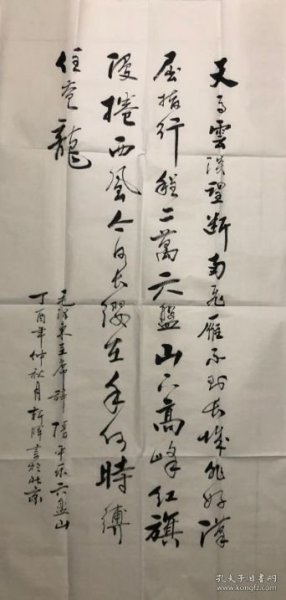 天高雲淡望斷南飛雁不到长城非好漢
屈指行程二萬六盤山上高峰红旗
漫捲西風今日长缨在手何時縛
住苍龍
毛泽东主席辞清平乐六盘山
丁酉年仲秋月書於北京
孔夫子旧书网
www.kongfz.com